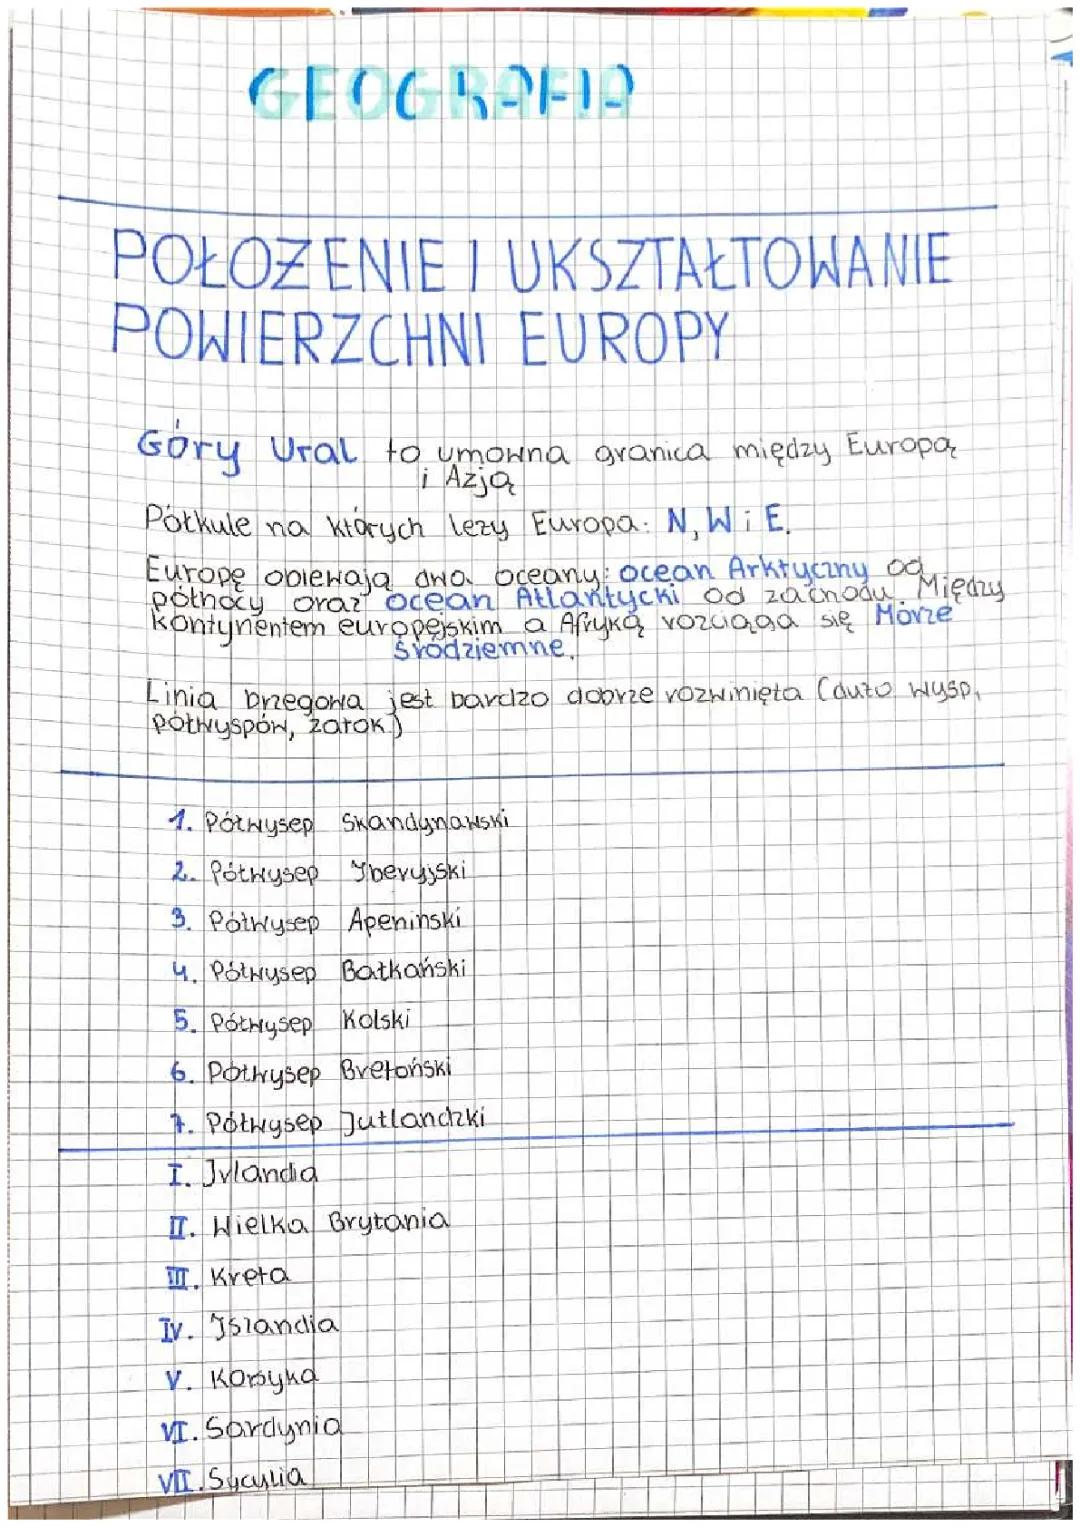 GEOGRAFIA
POŁOŻENIE I UKSZTAŁTOWANIE
POWIERZCHNI EUROPY
Góry Ural to umowna granica między Europą
i Azją
Półkule na których leży Europa: N, W i E.
Europę oblewają dwa oceany: ocean Arktyczny od
północy oraz ocean Atlantycki od zachodu. Między
kontynentem europejskim a Afryką rozciąga się Morze
śródziemne.
Linia brzegowa jest bardzo dobrze rozwinięta (dużo wysp,
półwyspów, zatok)
1. Półwysep Skandynawski
2. Półwysep Iberyjski
3. Półwysep Apeniński
4. Półwysep Bałkański
5. Półwysep Kolski
6. Półwysep Bretoński
7. Półwysep Jutlandzki
I. Irlandia
II. Wielka Brytania
III. Kreta
IV. Islandia
V. Korsyka
VI. Sardynia
VII. Sycylia